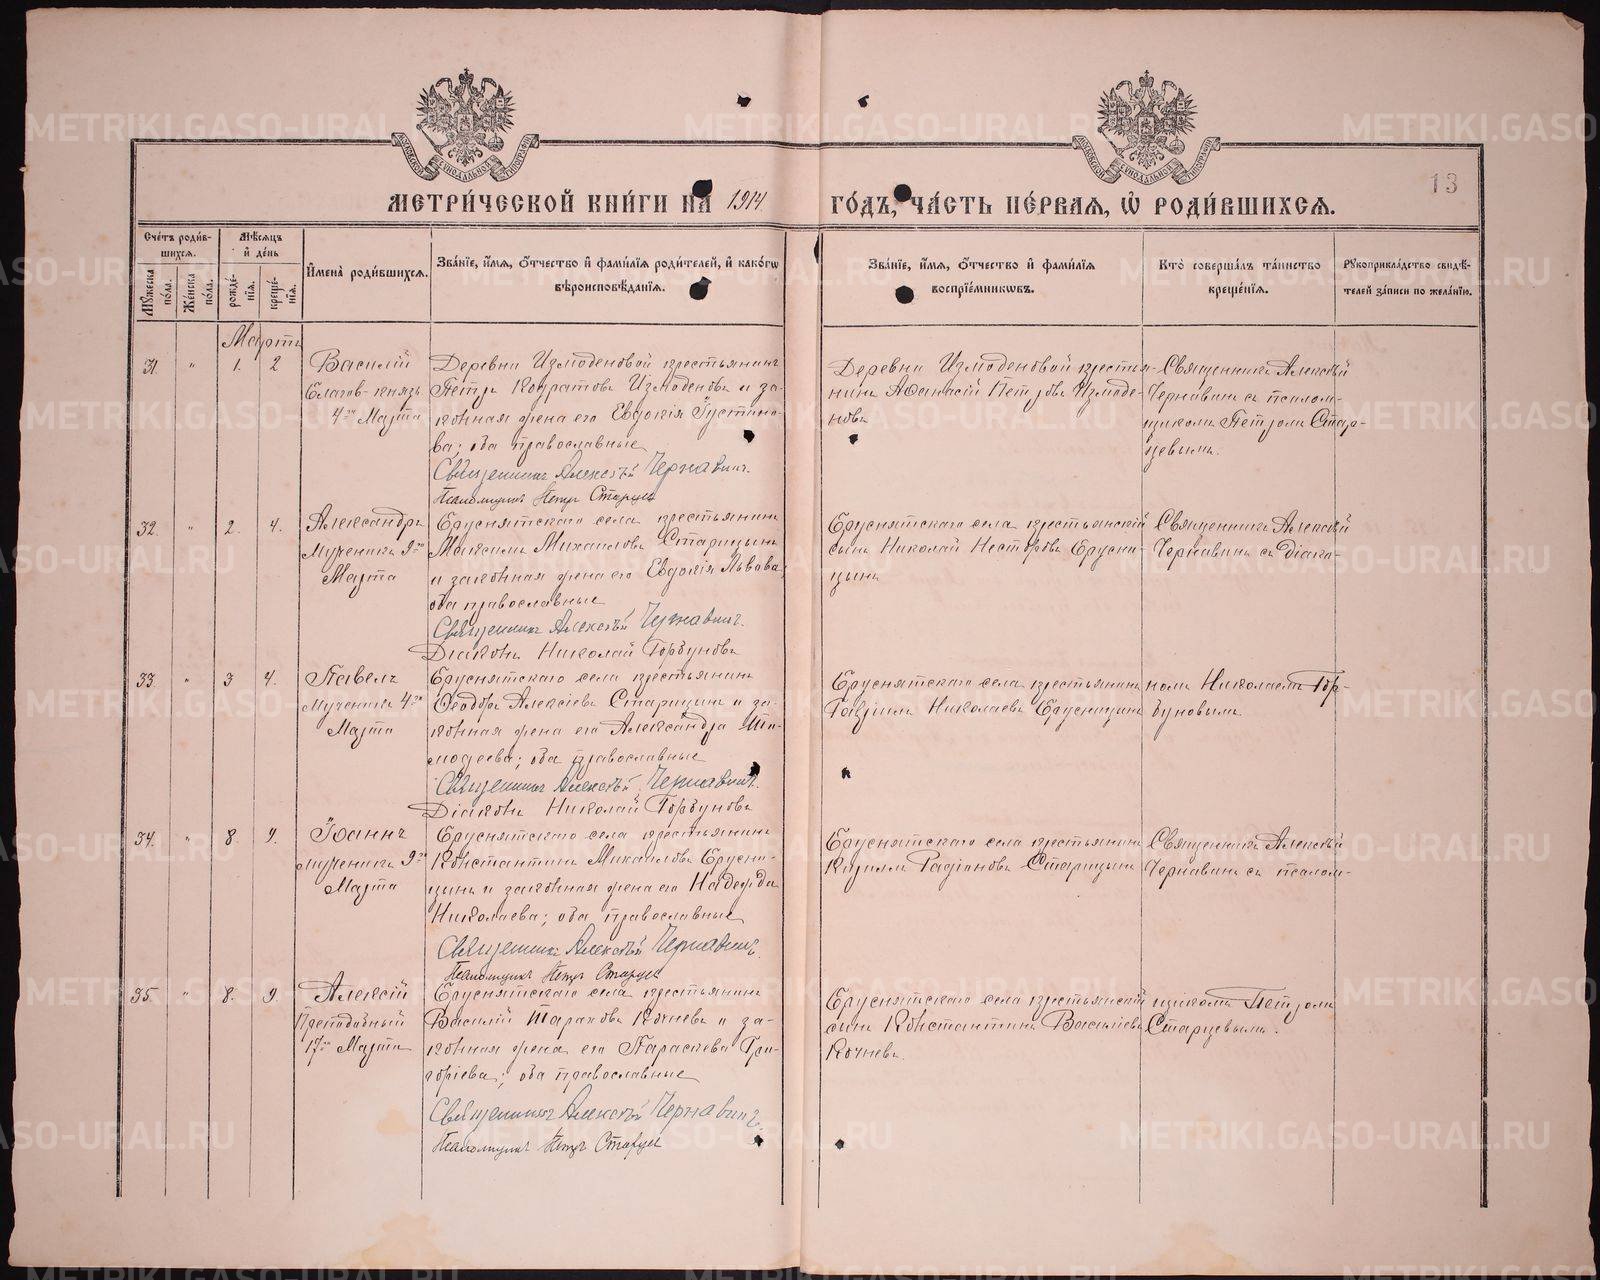 МОСКОВСКОЙ СѴНОДАЛЬНОЙ ТИПОГРАФІИ
МОСКОВСКОЙ СѴНОДАЛЬНОЙ ТИПОГРАФІИ
13
МЕТРИ́ЧЕСКОЙ КНИ́ГИ НА 1914 ГО́ДЪ, ЧА́СТЬ ПЕ́РВАЯ, Ѡ РОДИ́ВШИХСЯ.
Сче́тъ роди́в-
шихся.
Му́жеска по́ла.
Же́нска по́ла.
Мѣ́сяцъ
и де́нь
рожде́-
нія.
креще́-
нія.
Имена̀ роди́вшихся.
Зва́ніе, и́мя, ѻ́тчество и фами́лія роди́телей, и како́гѡ
вѣроисповѣ́данія.
Зва́ніе, и́мя, ѻ́тчество и фами́лія
воспріе́мникѡвъ.
Кто̀ соверша́лъ та́инство
креще́нія.
Рукоприкла́дство свидѣ́-
телей за́писи по жела́нію.
Мартъ
31. " 1. 2
Василій
Благов. князь
4го Марта
Деревни Измоденовой крестьянинъ
Петръ Кондратовъ Измоденовъ и за-
конная жена его Евдокія Іустино-
ва; оба православные
Священникъ Алексѣй Чернавинъ.
Псаломщикъ Петръ Старцевъ
Деревни Измоденовой крестья-
нинъ Аѳанасій Петровъ Измоде-
новъ
Священникъ Алексѣй
Чернавинъ съ псалом-
щикомъ Петромъ Стар-
цевымъ.
32. " 2. 4.
Александръ
Мученикъ 9го
Марта
Бруснятскаго села крестьянинъ
Максимъ Михаиловъ Старицынъ
и законная жена его Евдокія Львова;
оба православные
Священникъ Алексѣй Чернавинъ.
Діаконъ Николай Горбуновъ
Бруснятскаго села крестьянскій
сынъ Николай Несторовъ Брусни-
цынъ
Священникъ Алексѣй
Чернавинъ съ діако-
33. " 3 4.
Павелъ
Мученикъ 4го
Марта
Бруснятскаго села крестьянинъ
Ѳеодоръ Алексіевъ Старицынъ и за-
конная жена его Александра Ти-
моѳеева; оба православные
Священникъ Алексѣй Чернавинъ.
Діаконъ Николай Горбуновъ
Бруснятскаго села крестьянинъ
Гавріилъ Николаевъ Брусницынъ
номъ Николаемъ Гор-
буновымъ.
34. " 8. 9.
Іоаннъ
мученикъ 9го
Марта
Бруснятскаго села крестьянинъ
Константинъ Михаиловъ Брусни-
цынъ и законная жена его Надежда
Николаева; оба православные
Священникъ Алексѣй Чернавинъ.
Псаломщикъ Петръ Старцевъ
Бруснятскаго села крестьянинъ
Кириллъ Радіоновъ Старицынъ
Священникъ Алексѣй
Чернавинъ съ псалом-
35. " 8. 9.
Алексій
Преподобный
17го Марта
Бруснятскаго села крестьянинъ
Василій Кочневъ и за-
конная жена его Параскева Гри-
горіева; оба православные
Священникъ Алексѣй Чернавинъ.
Псаломщикъ Петръ Старцевъ
Бруснятскаго села крестьянскій
сынъ Константинъ Василіевъ
Кочневъ.
щикомъ Петромъ
Старцевымъ.
METRIKI.GASO-URAL.RU